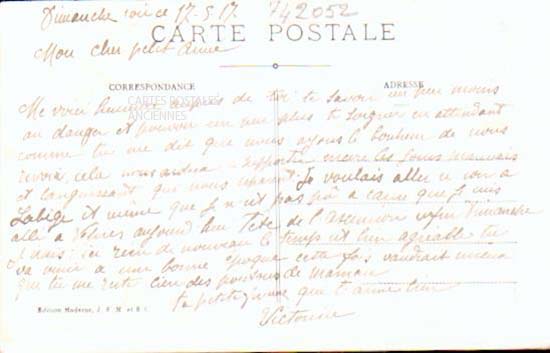 Dimanche soir ce 17-5-17. 742052
CARTE POSTALE
Mon cher petit
CORRESPONDANCE ADRESSE
CARTES POSTALES
ANCIENNES
Me voici auprès de toi te savoir un peu moins
au danger et pouvoir un peu plus te soigner en attendant
comme tu me dis que nous ayons le bonheur de nous
revoir cela nous aidera a supporter encore les jours mauvais
et languissant que nous Je voulais aller ce soir a
et même que je n'ai pas pû a cause que je suis
allé a aujourd'hui Fête de l'Ascension enfin Dimanche
ici rien de nouveau le temps est bien agréable tu
va venir a une bonne époque cette fois vaudrait mieux
que tu me des de maman
ta petite que t'aime bien
Victorine
Edition Moderne, J. F. M. et B. C.